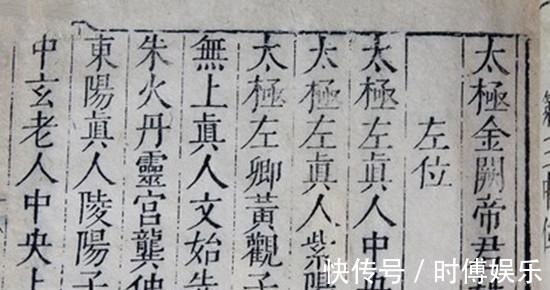 太極金闕帝君
左位
太極左眞人中
太極左眞人紫陽
太極左卿黃觀子
無上眞人文始先
朱火丹靈宮龔仲
東陽眞人陵陽子
中玄老人中央上
快传号 / 时傅娱乐